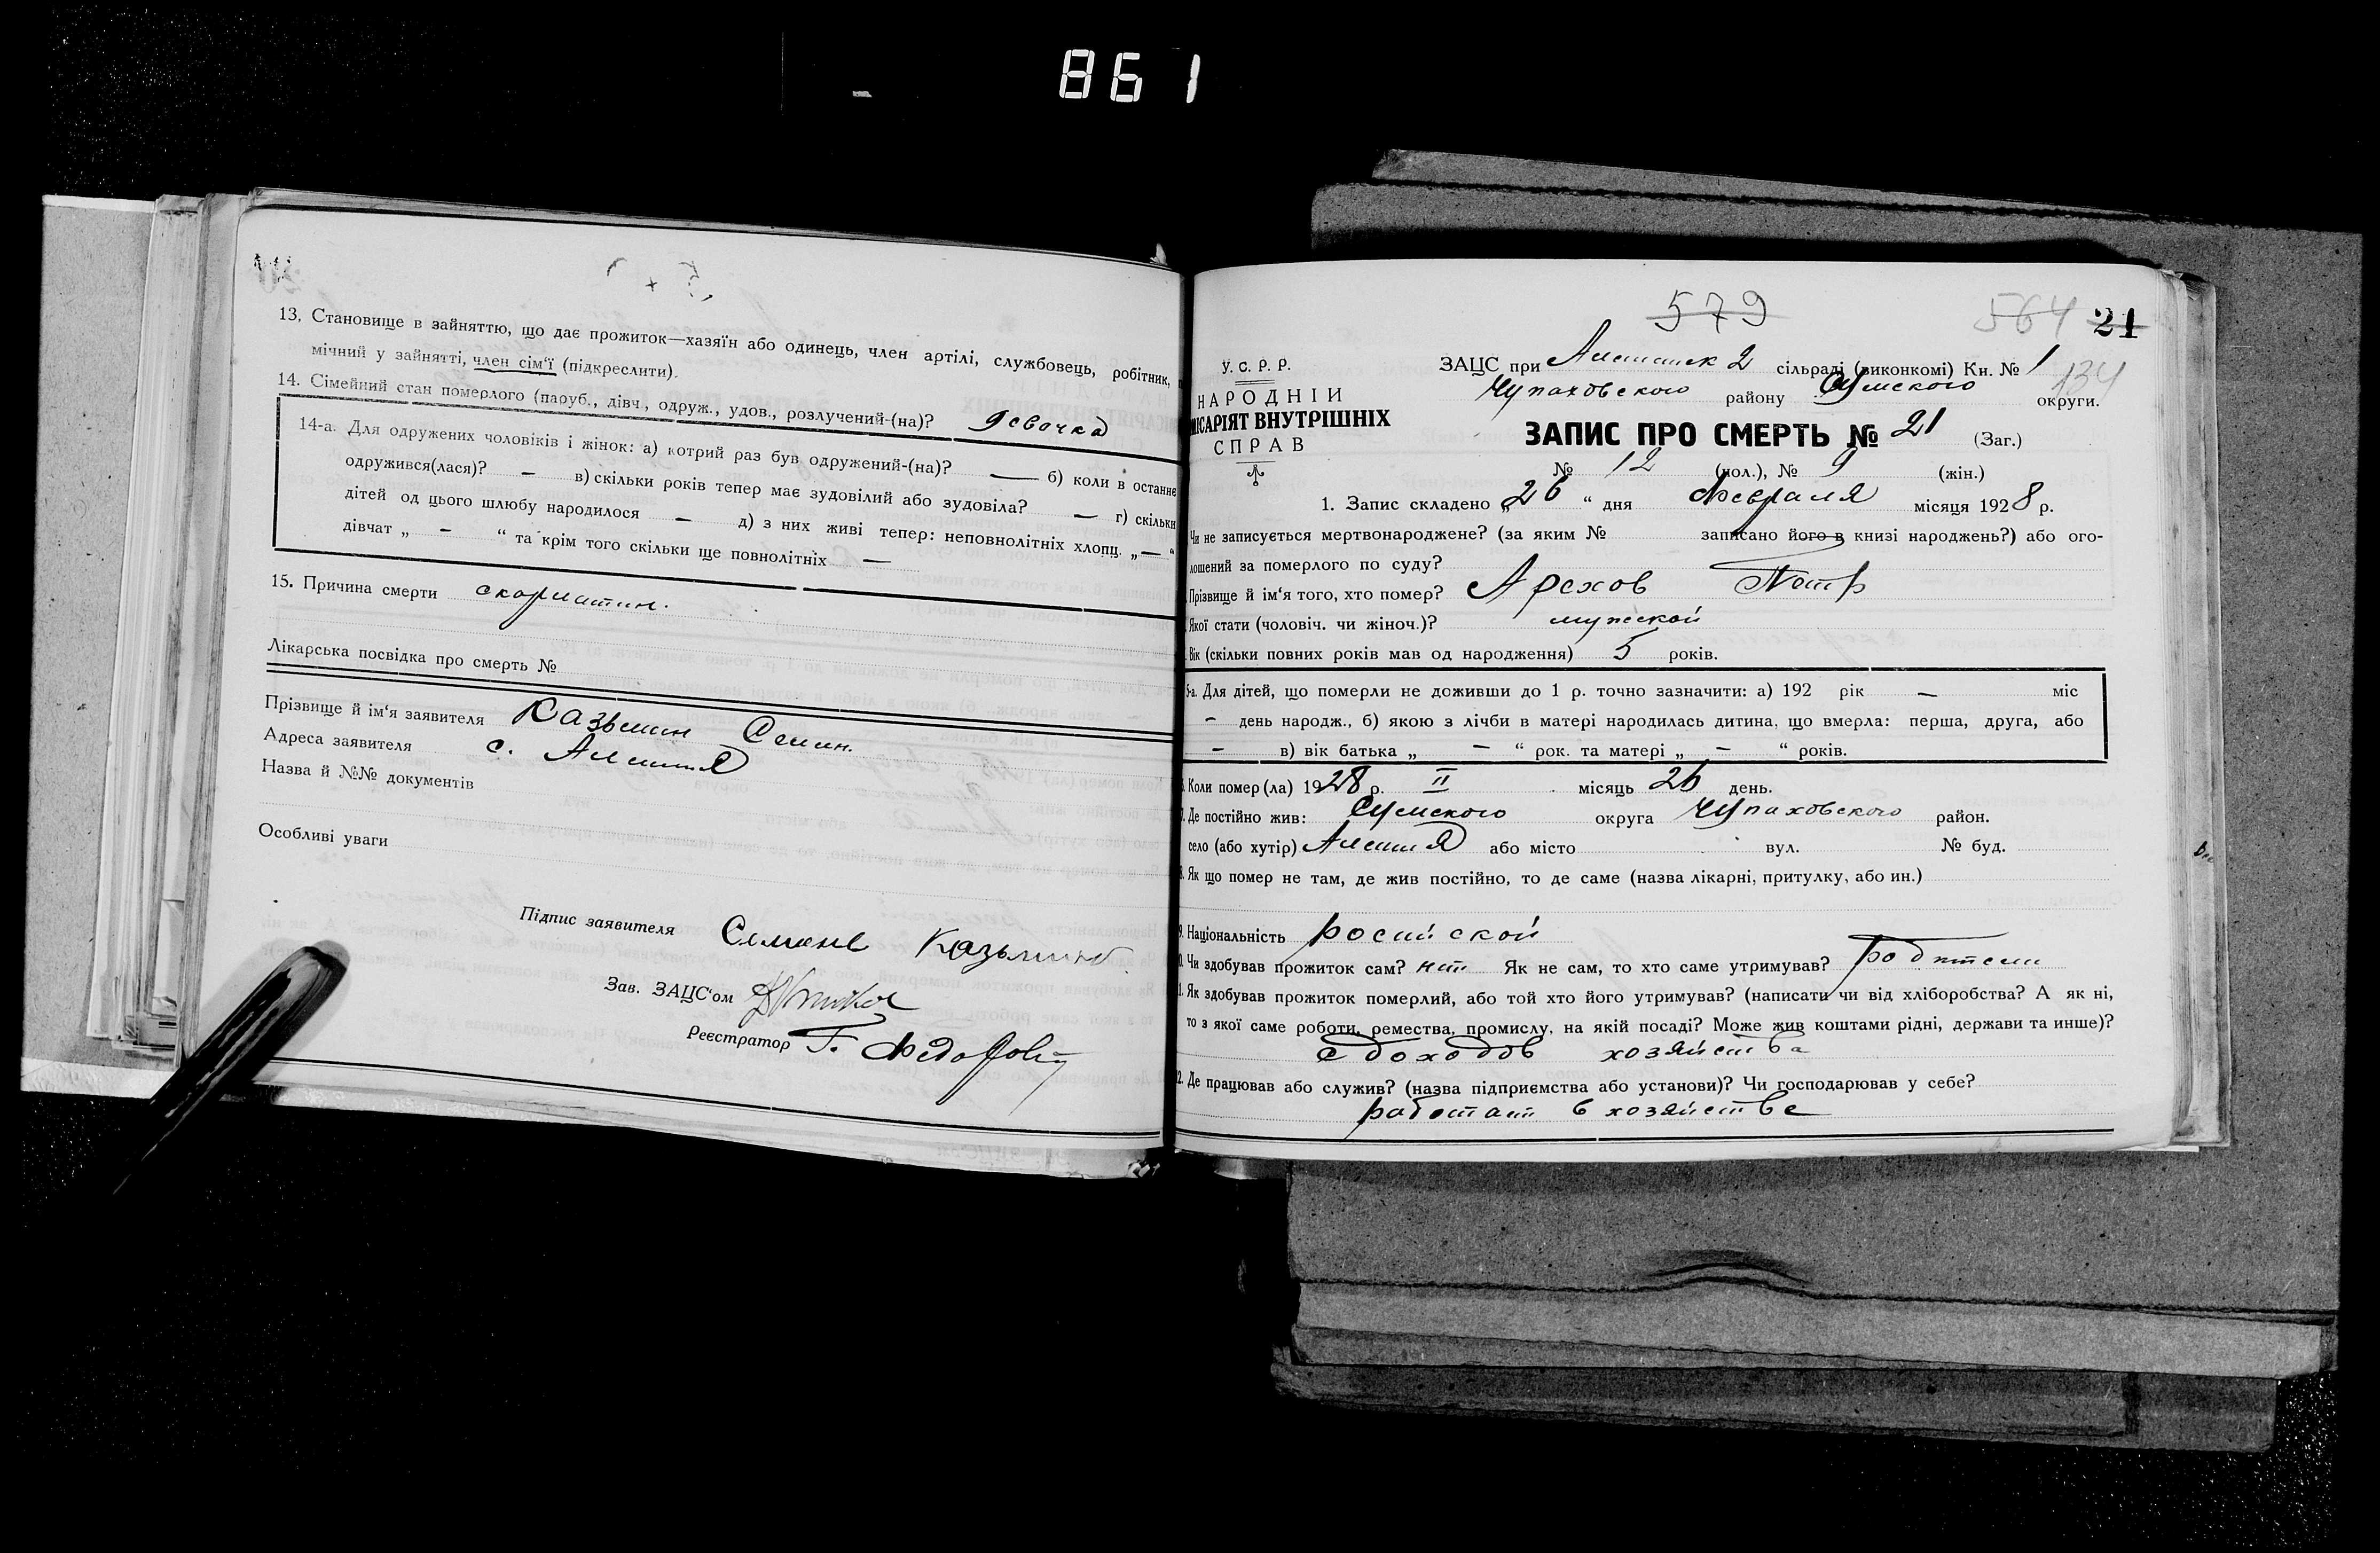 861
13. Становище в зайняттю, що дає прожиток—хазяїн або одинець, член артілі, службовець, робітник,
мічний у зайнятті, член сім'ї (підкреслити).
14. Сімейний стан померлого (паруб., дівч., одруж., удов., розлучений-(на)? девочка
14-а. Для одружених чоловіків і жінок: а) котрий раз був одружений-(на)? — б) коли в останнє
одружився(лася)? — в) скільки років тепер має зудовілий або зудовіла? — г) скільки
дітей од цього шлюбу народилося — д) з них живі тепер: неповнолітніх хлопц. „—“
дівчат „ — “ та крім того скільки ще повнолітніх —
15. Причина смерти скарлатин.
Лікарська посвідка про смерть №
Прізвище й ім'я заявителя Казьмин Семин.
Адреса заявителя с. Алешня
Назва й №№ документів
Особливі уваги
Підпис заявителя Семенъ Казьминъ
Зав. ЗАЦС'ом
Реєстратор Г.
579 564 21
У. С. Р. Р.
НАРОДНІЙ
МІСАРІЯТ ВНУТРІШНІХ
СПРАВ
ЗАЦС при 2 сільраді (виконкомі) Кн. № 1
134
Чупаховского району Сумского округи.
ЗАПИС ПРО СМЕРТЬ № 21 (Заг.)
№ 12 (чол.), № 9 (жін.)
1. Запис складено „26“ дня Февраля місяця 1928 р.
Чи не записується мертвонароджене? (за яким № записано його в книзі народжень?) або ого-
лошений за померлого по суду?
Прізвище й ім'я того, хто помер? Арехов Петр
Якої стати (чоловіч. чи жіноч.)? мужской
Вік (скільки повних років мав од народження) 5 років.
5-а. Для дітей, що померли не доживши до 1 р. точно зазначити: а) 192 рік — міс
— день народж., б) якою з лічби в матері народилась дитина, що вмерла: перша, друга, або
— в) вік батька „ — “ рок. та матері „ — “ років.
Коли помер(ла) 1928 р. II місяць 26 день.
Де постійно жив: Сумского округа Чупаховского район.
село (або хутір) Алешня або місто вул. № буд.
Як що помер не там, де жив постійно, то де саме (назва лікарні, притулку, або ин.)
9. Національність росийской
0. Чи здобував прожиток сам? нет Як не сам, то хто саме утримував? родители
1. Як здобував прожиток померлий, або той хто його утримував? (написати чи від хліборобства? А як ні,
то з якої саме роботи, ремества, промислу, на якій посаді? Може жив коштами рідні, держави та инше)?
с доходов хозяйства
2. Де працював або служив? (назва підприємства або установи)? Чи господарював у себе?
работает в хозяйстве